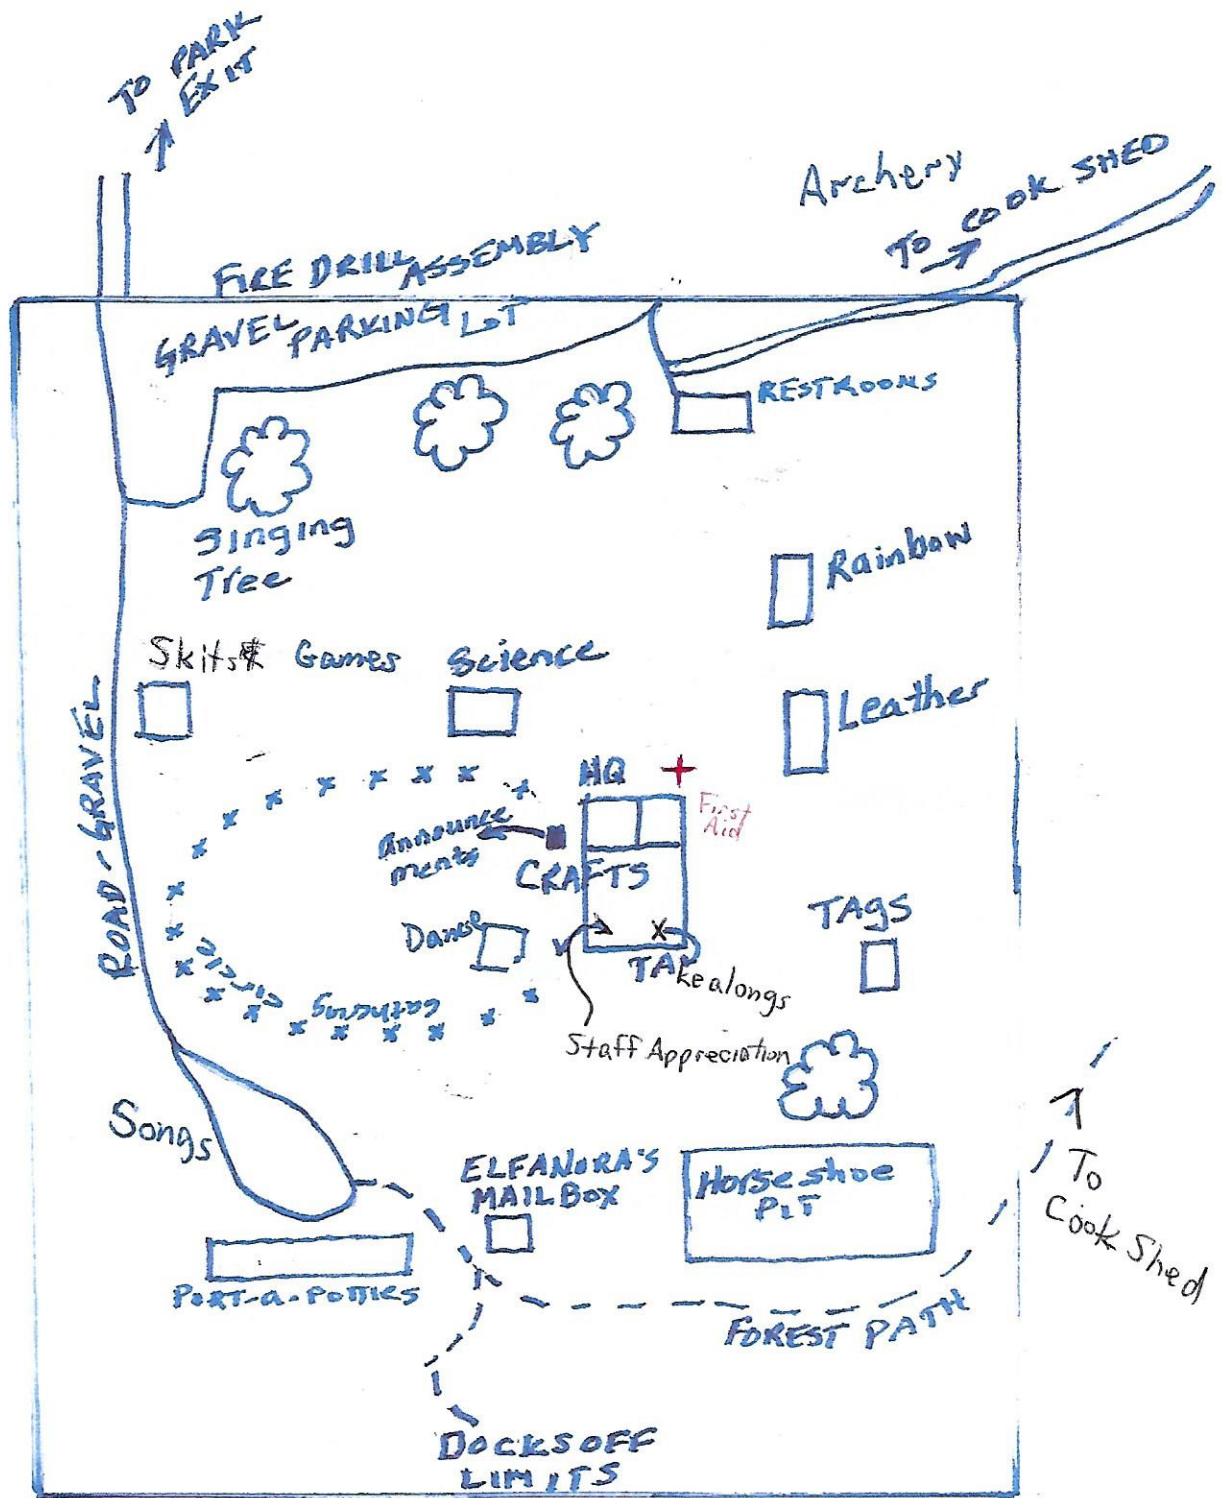 TO PARK
EXIT
Archery
TO COOK SHED
FIRE DRILL ASSEMBLY
GRAVEL PARKING LOT
RESTROOMS
Singing
Tree
Rainbow
Skits & Games
Science
Leather
ROAD-GRAVEL
HQ
First
Aid
Announce
ments
CRAFTS
TAgs
Dance
TAkealongs
Circle
Gathering
Staff Appreciation
Songs
ELFANORA'S
MAILBOX
Horseshoe
PIT
To
Cook Shed
PORT-a-POTTIES
FOREST PATH
DOCKS OFF
LIMITS